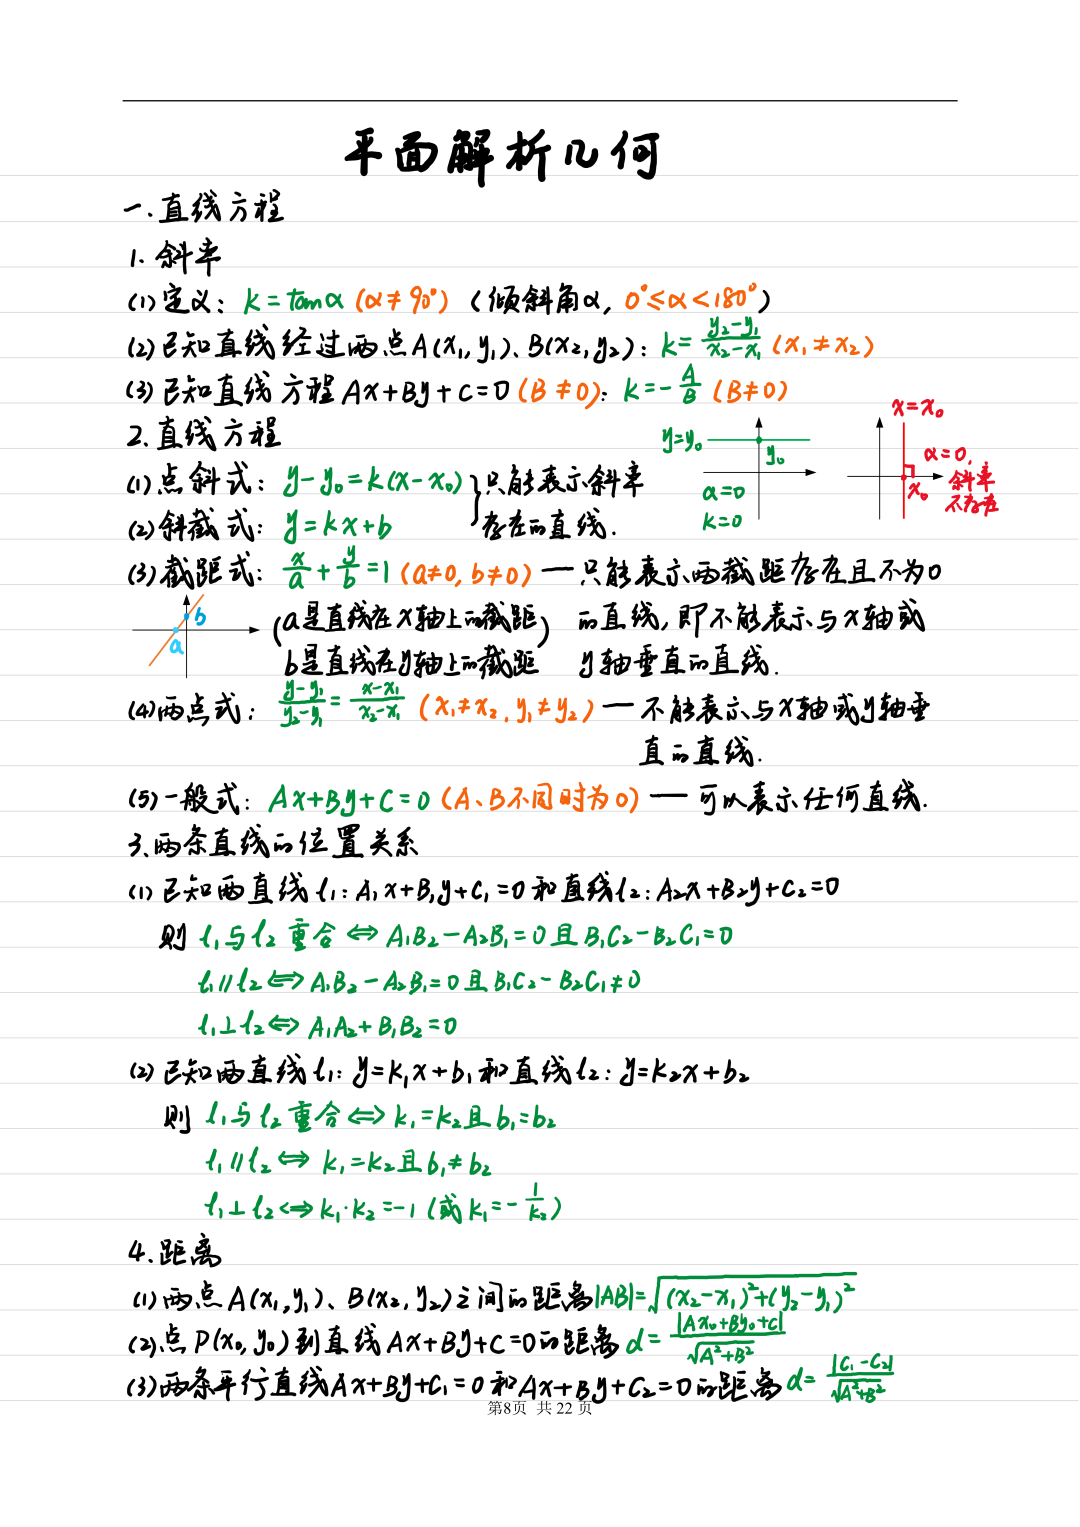 平面解析几何
一.直线方程
1.斜率
(1)定义: k=tanα (α≠90°) (倾斜角α, 0°≤α<180°)
(2)已知直线经过两点A(x₁,y₁)、B(x₂,y₂): k=(y₂-y₁)/(x₂-x₁) (x₁≠x₂)
(3)已知直线方程Ax+By+C=0 (B≠0): k=-A/B (B≠0)
2.直线方程
y=y₀ y₀ α=0 k=0
x=x₀ x₀ α=0, 斜率不存在
(1)点斜式: y-y₀=k(x-x₀) }只能表示斜率
(2)斜截式: y=kx+b 存在的直线.
(3)截距式: x/a+y/b=1 (a≠0, b≠0) — 只能表示两截距存在且不为0
b a (a是直线在x轴上的截距 的直线, 即不能表示与x轴或
b是直线在y轴上的截距) y轴垂直的直线.
(4)两点式: (y-y₁)/(y₂-y₁)=(x-x₁)/(x₂-x₁) (x₁≠x₂, y₁≠y₂) — 不能表示与x轴或y轴垂
直的直线.
(5)一般式: Ax+By+C=0 (A、B不同时为0) — 可以表示任何直线.
3.两条直线的位置关系
(1)已知两直线l₁: A₁x+B₁y+C₁=0和直线l₂: A₂x+B₂y+C₂=0
则 l₁与l₂重合⇔A₁B₂-A₂B₁=0且B₁C₂-B₂C₁=0
l₁∥l₂⇔A₁B₂-A₂B₁=0且B₁C₂-B₂C₁≠0
l₁⊥l₂⇔A₁A₂+B₁B₂=0
(2)已知两直线l₁: y=k₁x+b₁和直线l₂: y=k₂x+b₂
则 l₁与l₂重合⇔k₁=k₂且b₁=b₂
l₁∥l₂⇔k₁=k₂且b₁≠b₂
l₁⊥l₂⇔k₁·k₂=-1 (或k₁=-1/k₂)
4.距离
(1)两点A(x₁,y₁)、B(x₂,y₂)之间的距离|AB|=√((x₂-x₁)²+(y₂-y₁)²)
(2)点P(x₀,y₀)到直线Ax+By+C=0的距离 d=|Ax₀+By₀+C|/√(A²+B²)
(3)两条平行直线Ax+By+C₁=0和Ax+By+C₂=0的距离d=|C₁-C₂|/√(A²+B²)
第8页 共 22 页